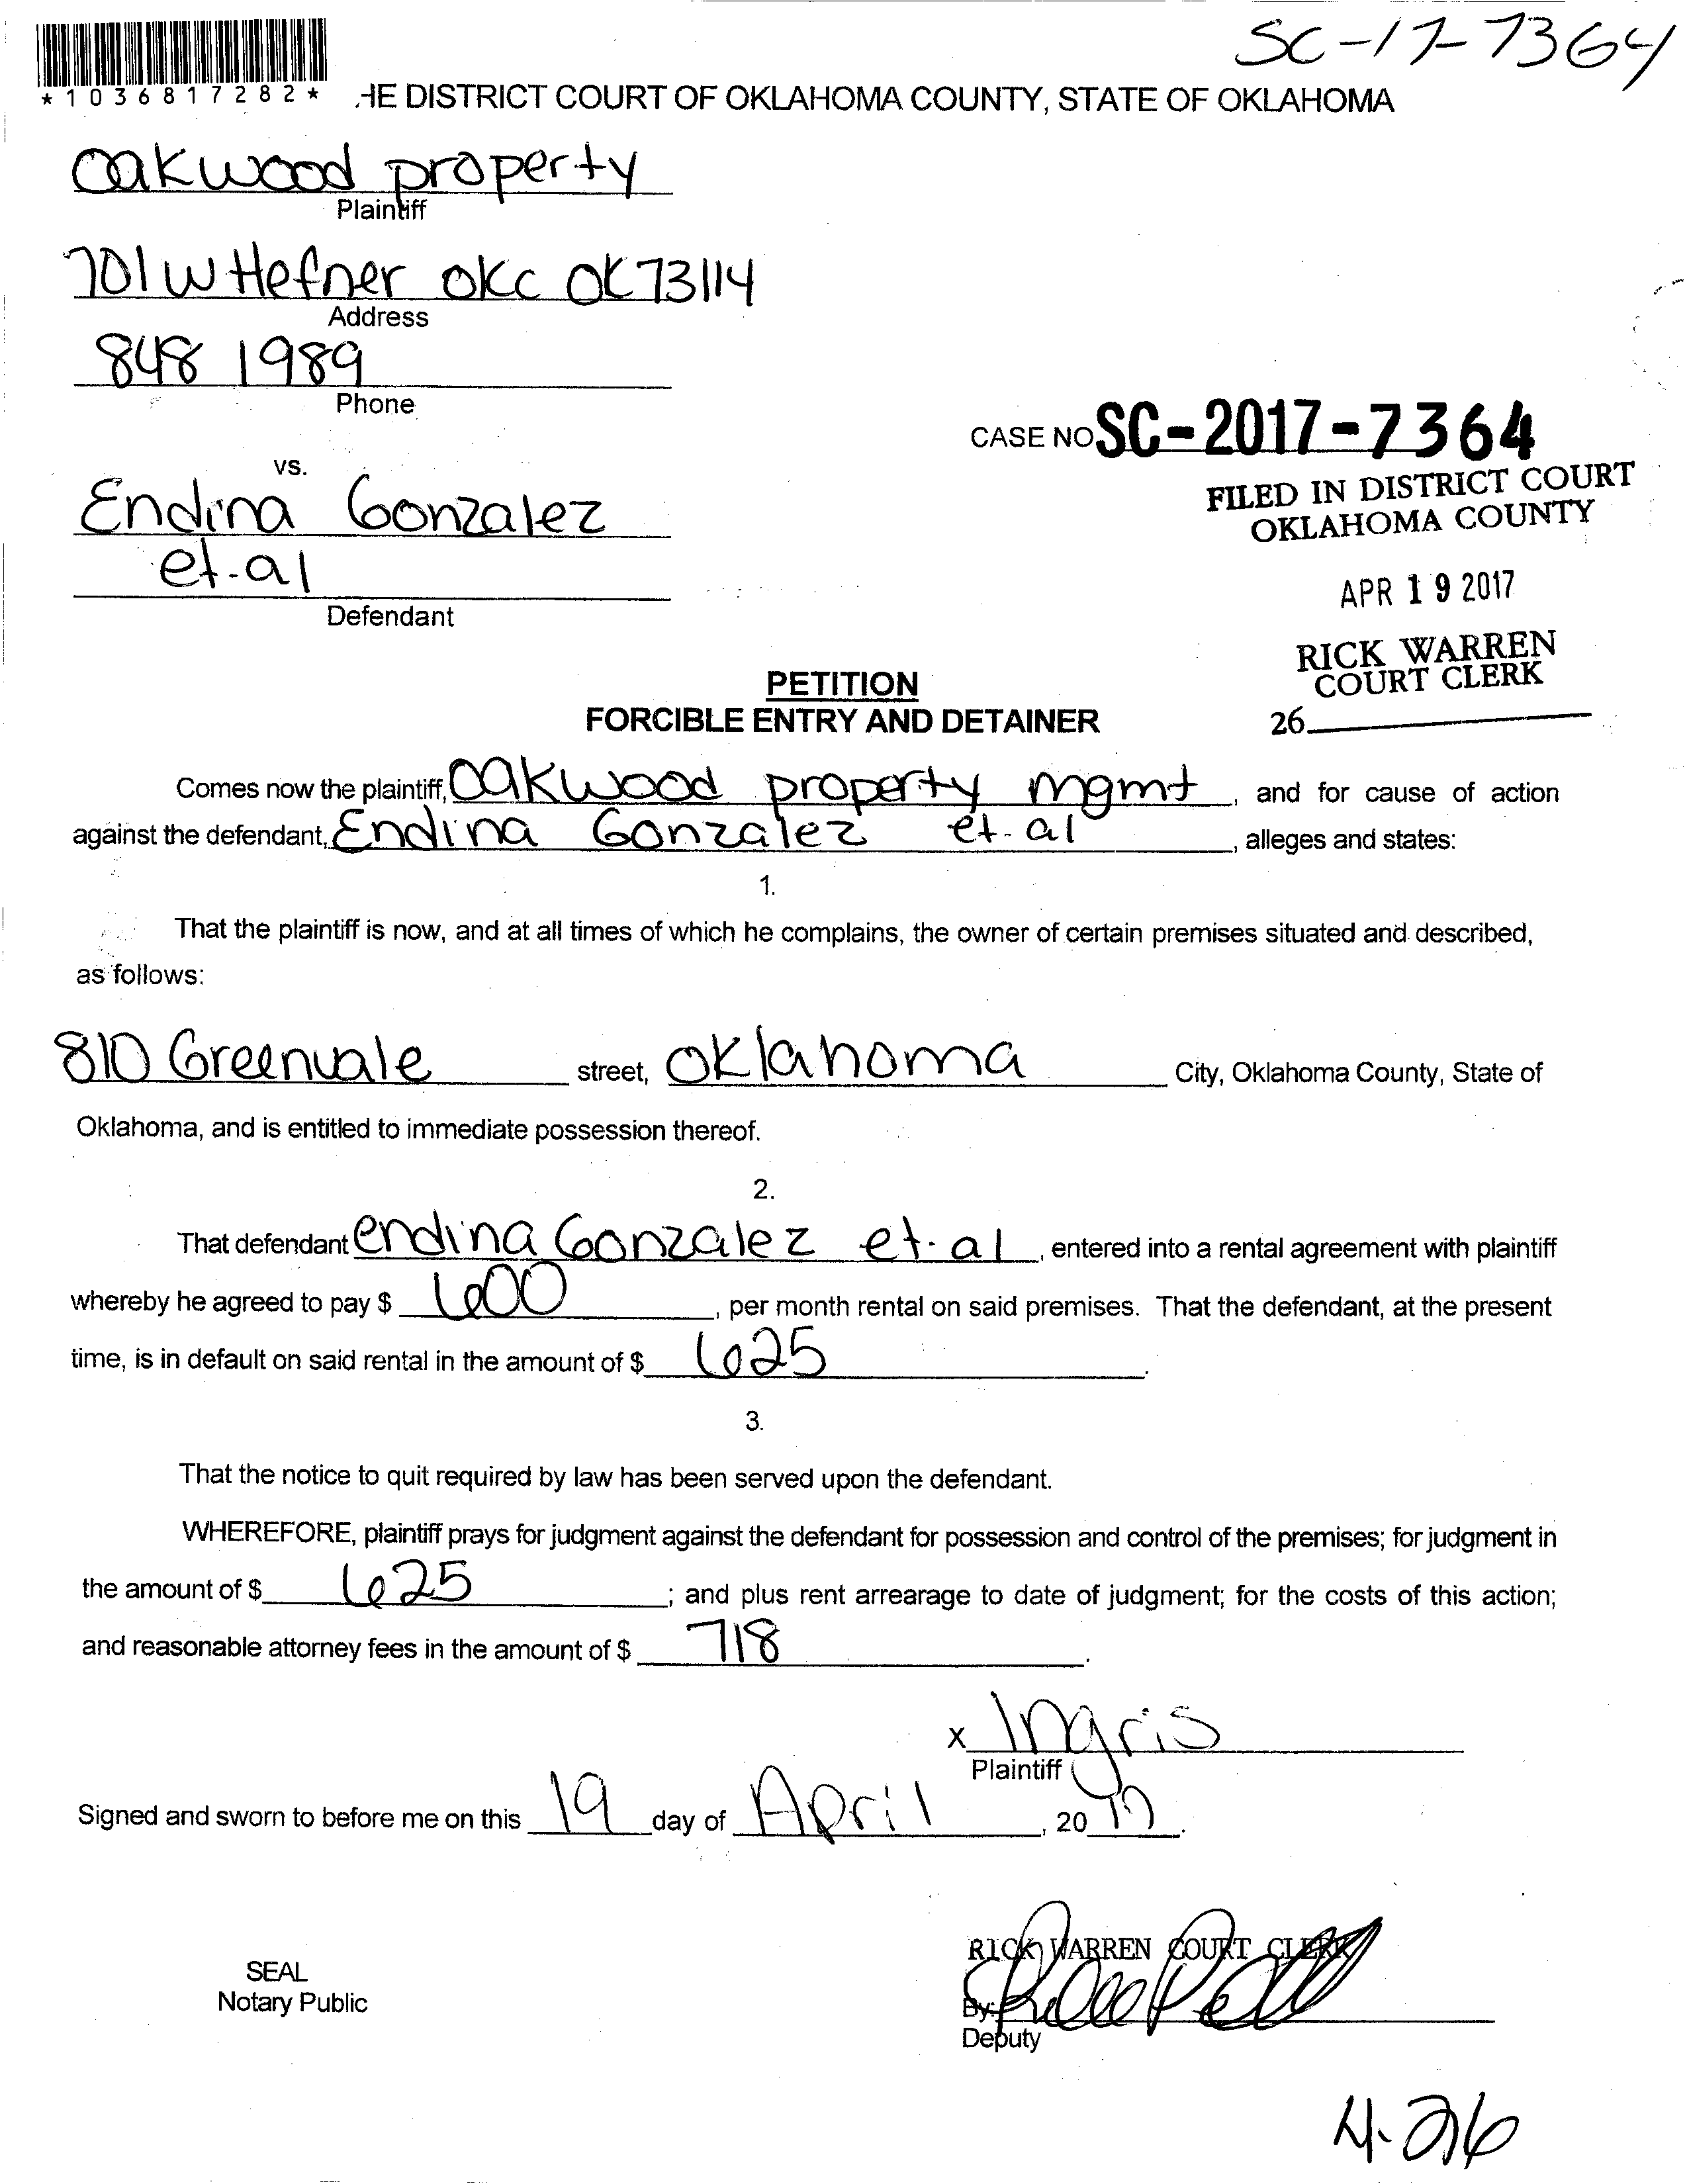 SC-17-7364
*1036817282*
HE DISTRICT COURT OF OKLAHOMA COUNTY, STATE OF OKLAHOMA
Oakwood property
Plaintiff
701 W Hefner OKC OK 73114
Address
848 1989
Phone
CASE NO SC-2017-7364
vs.
FILED IN DISTRICT COURT
OKLAHOMA COUNTY
Endina Gonzalez
et.al
Defendant
APR 19 2017
RICK WARREN
COURT CLERK
26
PETITION
FORCIBLE ENTRY AND DETAINER
Comes now the plaintiff, Oakwood property mgmt, and for cause of action
against the defendant, Endina Gonzalez et.al, alleges and states:
1.
That the plaintiff is now, and at all times of which he complains, the owner of certain premises situated and described,
as follows:
810 Greenvale street, Oklahoma City, Oklahoma County, State of
Oklahoma, and is entitled to immediate possession thereof.
2.
That defendant endina Gonzalez et.al, entered into a rental agreement with plaintiff
whereby he agreed to pay $ 600, per month rental on said premises. That the defendant, at the present
time, is in default on said rental in the amount of $ 625.
3.
That the notice to quit required by law has been served upon the defendant.
WHEREFORE, plaintiff prays for judgment against the defendant for possession and control of the premises; for judgment in
the amount of $ 625; and plus rent arrearage to date of judgment; for the costs of this action;
and reasonable attorney fees in the amount of $ 718.
x Ingris
Plaintiff
Signed and sworn to before me on this 19 day of April, 2017.
SEAL
Notary Public
RICK WARREN COURT CLERK
By:
Deputy
4-26